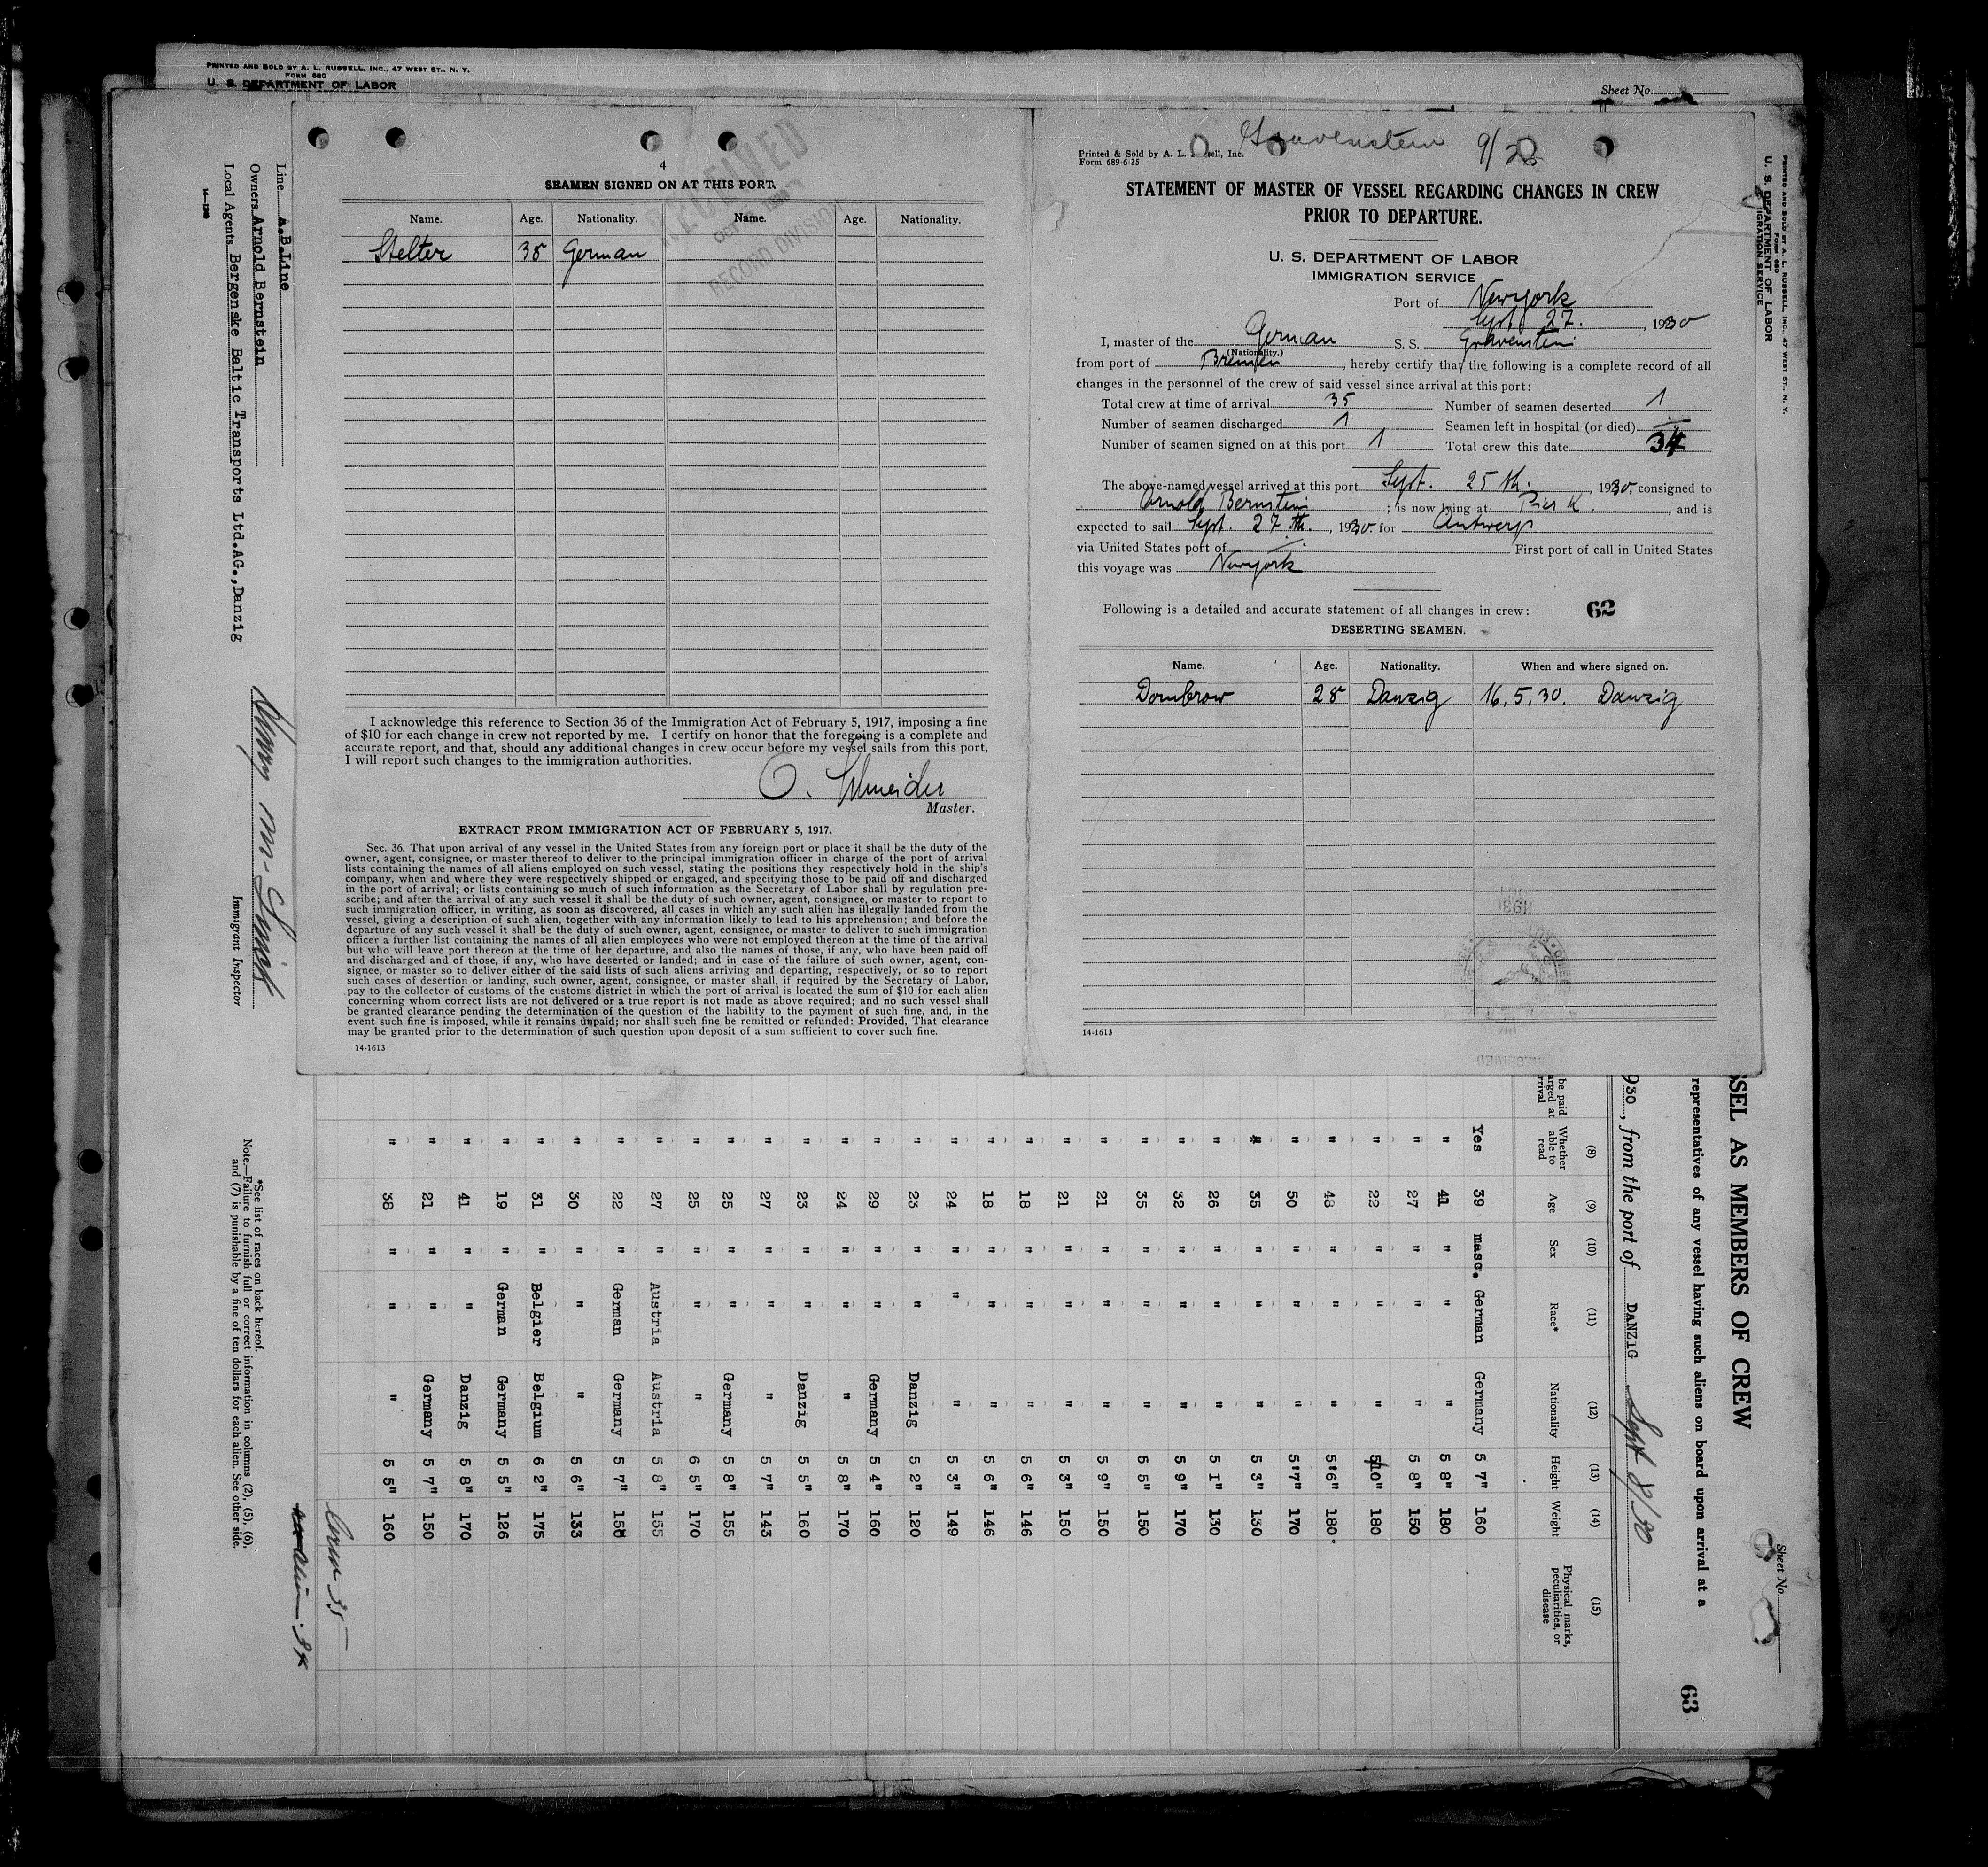 PRINTED AND SOLD BY A. L. RUSSELL, INC., 47 WEST ST., N. Y.
FORM 680
U. S. DEPARTMENT OF LABOR
Sheet No.
4
SEAMEN SIGNED ON AT THIS PORT.
Name. Age. Nationality. Name. Age. Nationality.
Stelter 38 German
RECEIVED
RECORD DIVISION
I acknowledge this reference to Section 36 of the Immigration Act of February 5, 1917, imposing a fine
of $10 for each change in crew not reported by me. I certify on honor that the foregoing is a complete and
accurate report, and that, should any additional changes in crew occur before my vessel sails from this port,
I will report such changes to the immigration authorities.
O. Schneider
Master.
EXTRACT FROM IMMIGRATION ACT OF FEBRUARY 5, 1917.
Sec. 36. That upon arrival of any vessel in the United States from any foreign port or place it shall be the duty of the
owner, agent, consignee, or master thereof to deliver to the principal immigration officer in charge of the port of arrival
lists containing the names of all aliens employed on such vessel, stating the positions they respectively hold in the ship's
company, when and where they were respectively shipped or engaged, and specifying those to be paid off and discharged
in the port of arrival; or lists containing so much of such information as the Secretary of Labor shall by regulation pre-
scribe; and after the arrival of any such vessel it shall be the duty of such owner, agent, consignee, or master to report to
such immigration officer, in writing, as soon as discovered, all cases in which any such alien has illegally landed from the
vessel, giving a description of such alien, together with any information likely to lead to his apprehension; and before the
departure of any such vessel it shall be the duty of such owner, agent, consignee, or master to deliver to such immigration
officer a further list containing the names of all alien employees who were not employed thereon at the time of the arrival
but who will leave port thereon at the time of her departure, and also the names of those, if any, who have been paid off
and discharged and of those, if any, who have deserted or landed; and in case of the failure of such owner, agent, con-
signee, or master so to deliver either of the said lists of such aliens arriving and departing, respectively, or so to report
such cases of desertion or landing, such owner, agent, consignee, or master shall, if required by the Secretary of Labor,
pay to the collector of customs of the customs district in which the port of arrival is located the sum of $10 for each alien
concerning whom correct lists are not delivered or a true report is not made as above required; and no such vessel shall
be granted clearance pending the determination of the question of the liability to the payment of such fine, and, in the
event such fine is imposed, while it remains unpaid; nor shall such fine be remitted or refunded: Provided, That clearance
may be granted prior to the determination of such question upon deposit of a sum sufficient to cover such fine.
14-1613
Gravenstein
Printed & Sold by A. L. ell, Inc.
Form 689-6-25
STATEMENT OF MASTER OF VESSEL REGARDING CHANGES IN CREW
PRIOR TO DEPARTURE.
U. S. DEPARTMENT OF LABOR
IMMIGRATION SERVICE
Port of Newyork
Sept 27. , 1930
I, master of the German S. S. Gravenstein
(Nationality.)
from port of Bremen , hereby certify that the following is a complete record of all
changes in the personnel of the crew of said vessel since arrival at this port:
Total crew at time of arrival 35 Number of seamen deserted 1
Number of seamen discharged 1 Seamen left in hospital (or died) —
Number of seamen signed on at this port 1 Total crew this date 34
The above-named vessel arrived at this port Sept. 25 th. , 1930, consigned to
Arnold Bernstein ; is now lying at Pier K. , and is
expected to sail Sept. 27 th. , 1930. for Antwerp
via United States port of First port of call in United States
this voyage was Newyork
Following is a detailed and accurate statement of all changes in crew: 62
DESERTING SEAMEN.
Name. Age. Nationality. When and where signed on.
Dombrow 28 Danzig 16.5.30. Danzig
14-1613
PRINTED AND SOLD BY A. L. RUSSELL, INC., 47 WEST ST., N. Y.
FORM 680
U. S. DEPARTMENT OF LABOR
IGRATION SERVICE
Sheet No.
63
SSEL AS MEMBERS OF CREW
representatives of any vessel having such aliens on board upon arrival at a
930 , from the port of DANZIG Sept 8/30
be paid arged at rrival (8) Whether able to read (9) Age (10) Sex (11) Race* (12) Nationality (13) Height (14) Weight (15) Physical marks, peculiarities, or disease
Yes 39 masc. German Germany 5 7" 160
" 41 " " " 5 8" 180
" 27 " " " 5 8" 150
" 22 " " " 5 10" 180
" 48 " " " 5'6" 180.
" 50 " " " 5'7" 170
" 35 " " " 5 3" 130
" 26 " " " 5 1" 130
" 32 " " " 5 9" 170
" 35 " " " 5 5" 150
" 21 " " " 5 9" 150
" 21 " " " 5 3" 150
" 18 " " " 5 6" 146
" 18 " " " 5 6" 146
" 24 " " " 5 3" 149
" 23 " " Danzig 5 2" 120
" 29 " " Germany 5 4" 160
" 24 " " " 5 8" 170
" 23 " " Danzig 5 5" 160
" 27 " " " 5 7" 143
" 25 " " Germany 5 8" 155
" 25 " " " 6 5" 170
" 27 " Austria Austria 5 8" 155
" 22 " German Germany 5 7" 155
" 30 " " " 5 6" 133
" 31 " Belgier Belgium 6 2" 175
" 19 " German Germany 5 5" 126
" 41 " " Danzig 5 8" 170
" 21 " " Germany 5 7" 150
" 38 " " " 5 5" 160
Line A.B.Line
Owners Arnold Bernstein
Local Agents Bergenske Baltic Transports Ltd.AG.,Danzig
Immigrant Inspector
*See list of races on back hereof.
Note.—Failure to furnish full or correct information in columns (2), (5), (6),
and (7) is punishable by a fine of ten dollars for each alien. See other side.